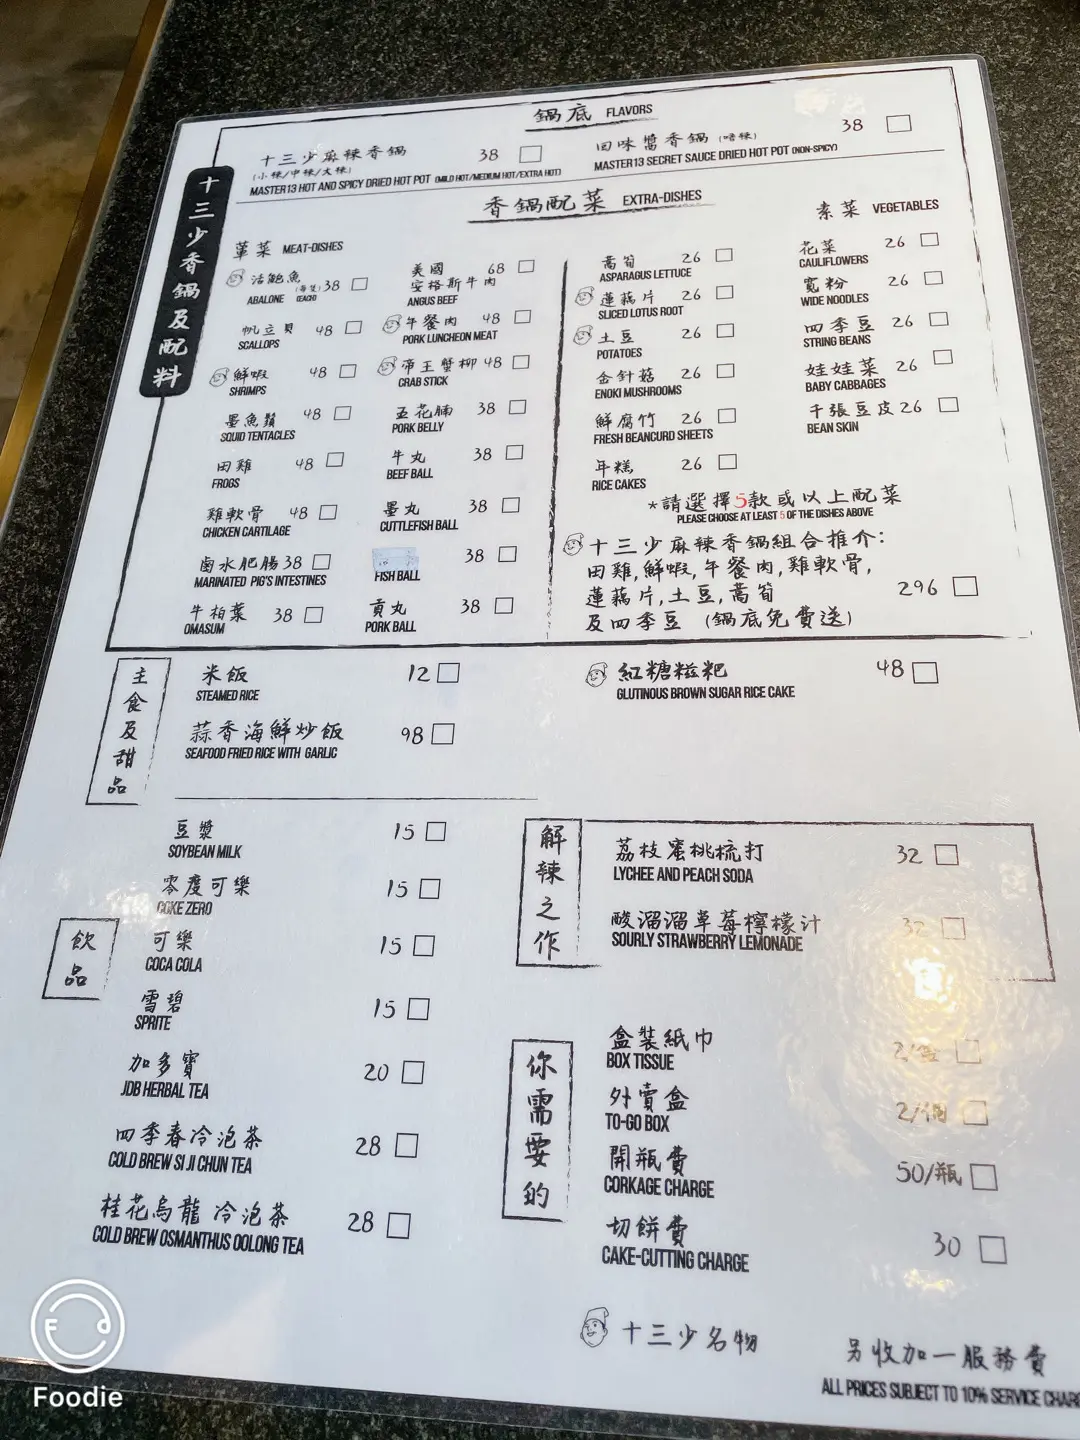 鍋底 FLAVORS
十三少麻辣香鍋 38
(小辣/中辣/大辣)
MASTER13 HOT AND SPICY DRIED HOT POT (MILD HOT/MEDIUM HOT/EXTRA HOT)
回味醬香鍋 (唔辣) 38
MASTER13 SECRET SAUCE DRIED HOT POT (NON-SPICY)
十三少香鍋及配料
香鍋配菜 EXTRA-DISHES
葷菜 MEAT-DISHES
活鮑魚 38
ABALONE (EACH)
帆立貝 48
SCALLOPS
鮮蝦 48
SHRIMPS
墨魚鬚 48
SQUID TENTACLES
田雞 48
FROGS
雞軟骨 48
CHICKEN CARTILAGE
鹵水肥腸 38
MARINATED PIG'S INTESTINES
牛柏葉 38
OMASUM
美國 68
安格斯牛肉
ANGUS BEEF
午餐肉 48
PORK LUNCHEON MEAT
帝王蟹柳 48
CRAB STICK
五花腩 38
PORK BELLY
牛丸 38
BEEF BALL
墨丸 38
CUTTLEFISH BALL
38
FISH BALL
貢丸 38
PORK BALL
萵筍 26
ASPARAGUS LETTUCE
蓮藕片 26
SLICED LOTUS ROOT
土豆 26
POTATOES
金針菇 26
ENOKI MUSHROOMS
鮮腐竹 26
FRESH BEANCURD SHEETS
年糕 26
RICE CAKES
素菜 VEGETABLES
花菜 26
CAULIFLOWERS
寬粉 26
WIDE NOODLES
四季豆 26
STRING BEANS
娃娃菜 26
BABY CABBAGES
千張豆皮 26
BEAN SKIN
*請選擇5款或以上配菜
PLEASE CHOOSE AT LEAST 5 OF THE DISHES ABOVE
十三少麻辣香鍋組合推介:
田雞,鮮蝦,午餐肉,雞軟骨,
蓮藕片,土豆,萵筍 296
及四季豆 (鍋底免費送)
主食及甜品
米飯 12
STEAMED RICE
蒜香海鮮炒飯 98
SEAFOOD FRIED RICE WITH GARLIC
紅糖糍粑 48
GLUTINOUS BROWN SUGAR RICE CAKE
飲品
豆漿 15
SOYBEAN MILK
零度可樂 15
COKE ZERO
可樂 15
COCA COLA
雪碧 15
SPRITE
加多寶 20
JDB HERBAL TEA
四季春冷泡茶 28
COLD BREW SI JI CHUN TEA
桂花烏龍冷泡茶 28
COLD BREW OSMANTHUS OOLONG TEA
解辣之作
荔枝蜜桃梳打 32
LYCHEE AND PEACH SODA
酸溜溜草莓檸檬汁 32
SOURLY STRAWBERRY LEMONADE
你需要的
盒裝紙巾 2/盒
BOX TISSUE
外賣盒 2/個
TO-GO BOX
開瓶費 50/瓶
CORKAGE CHARGE
切餅費 30
CAKE-CUTTING CHARGE
十三少名物
另收加一服務費
ALL PRICES SUBJECT TO 10% SERVICE CHARG
Foodie